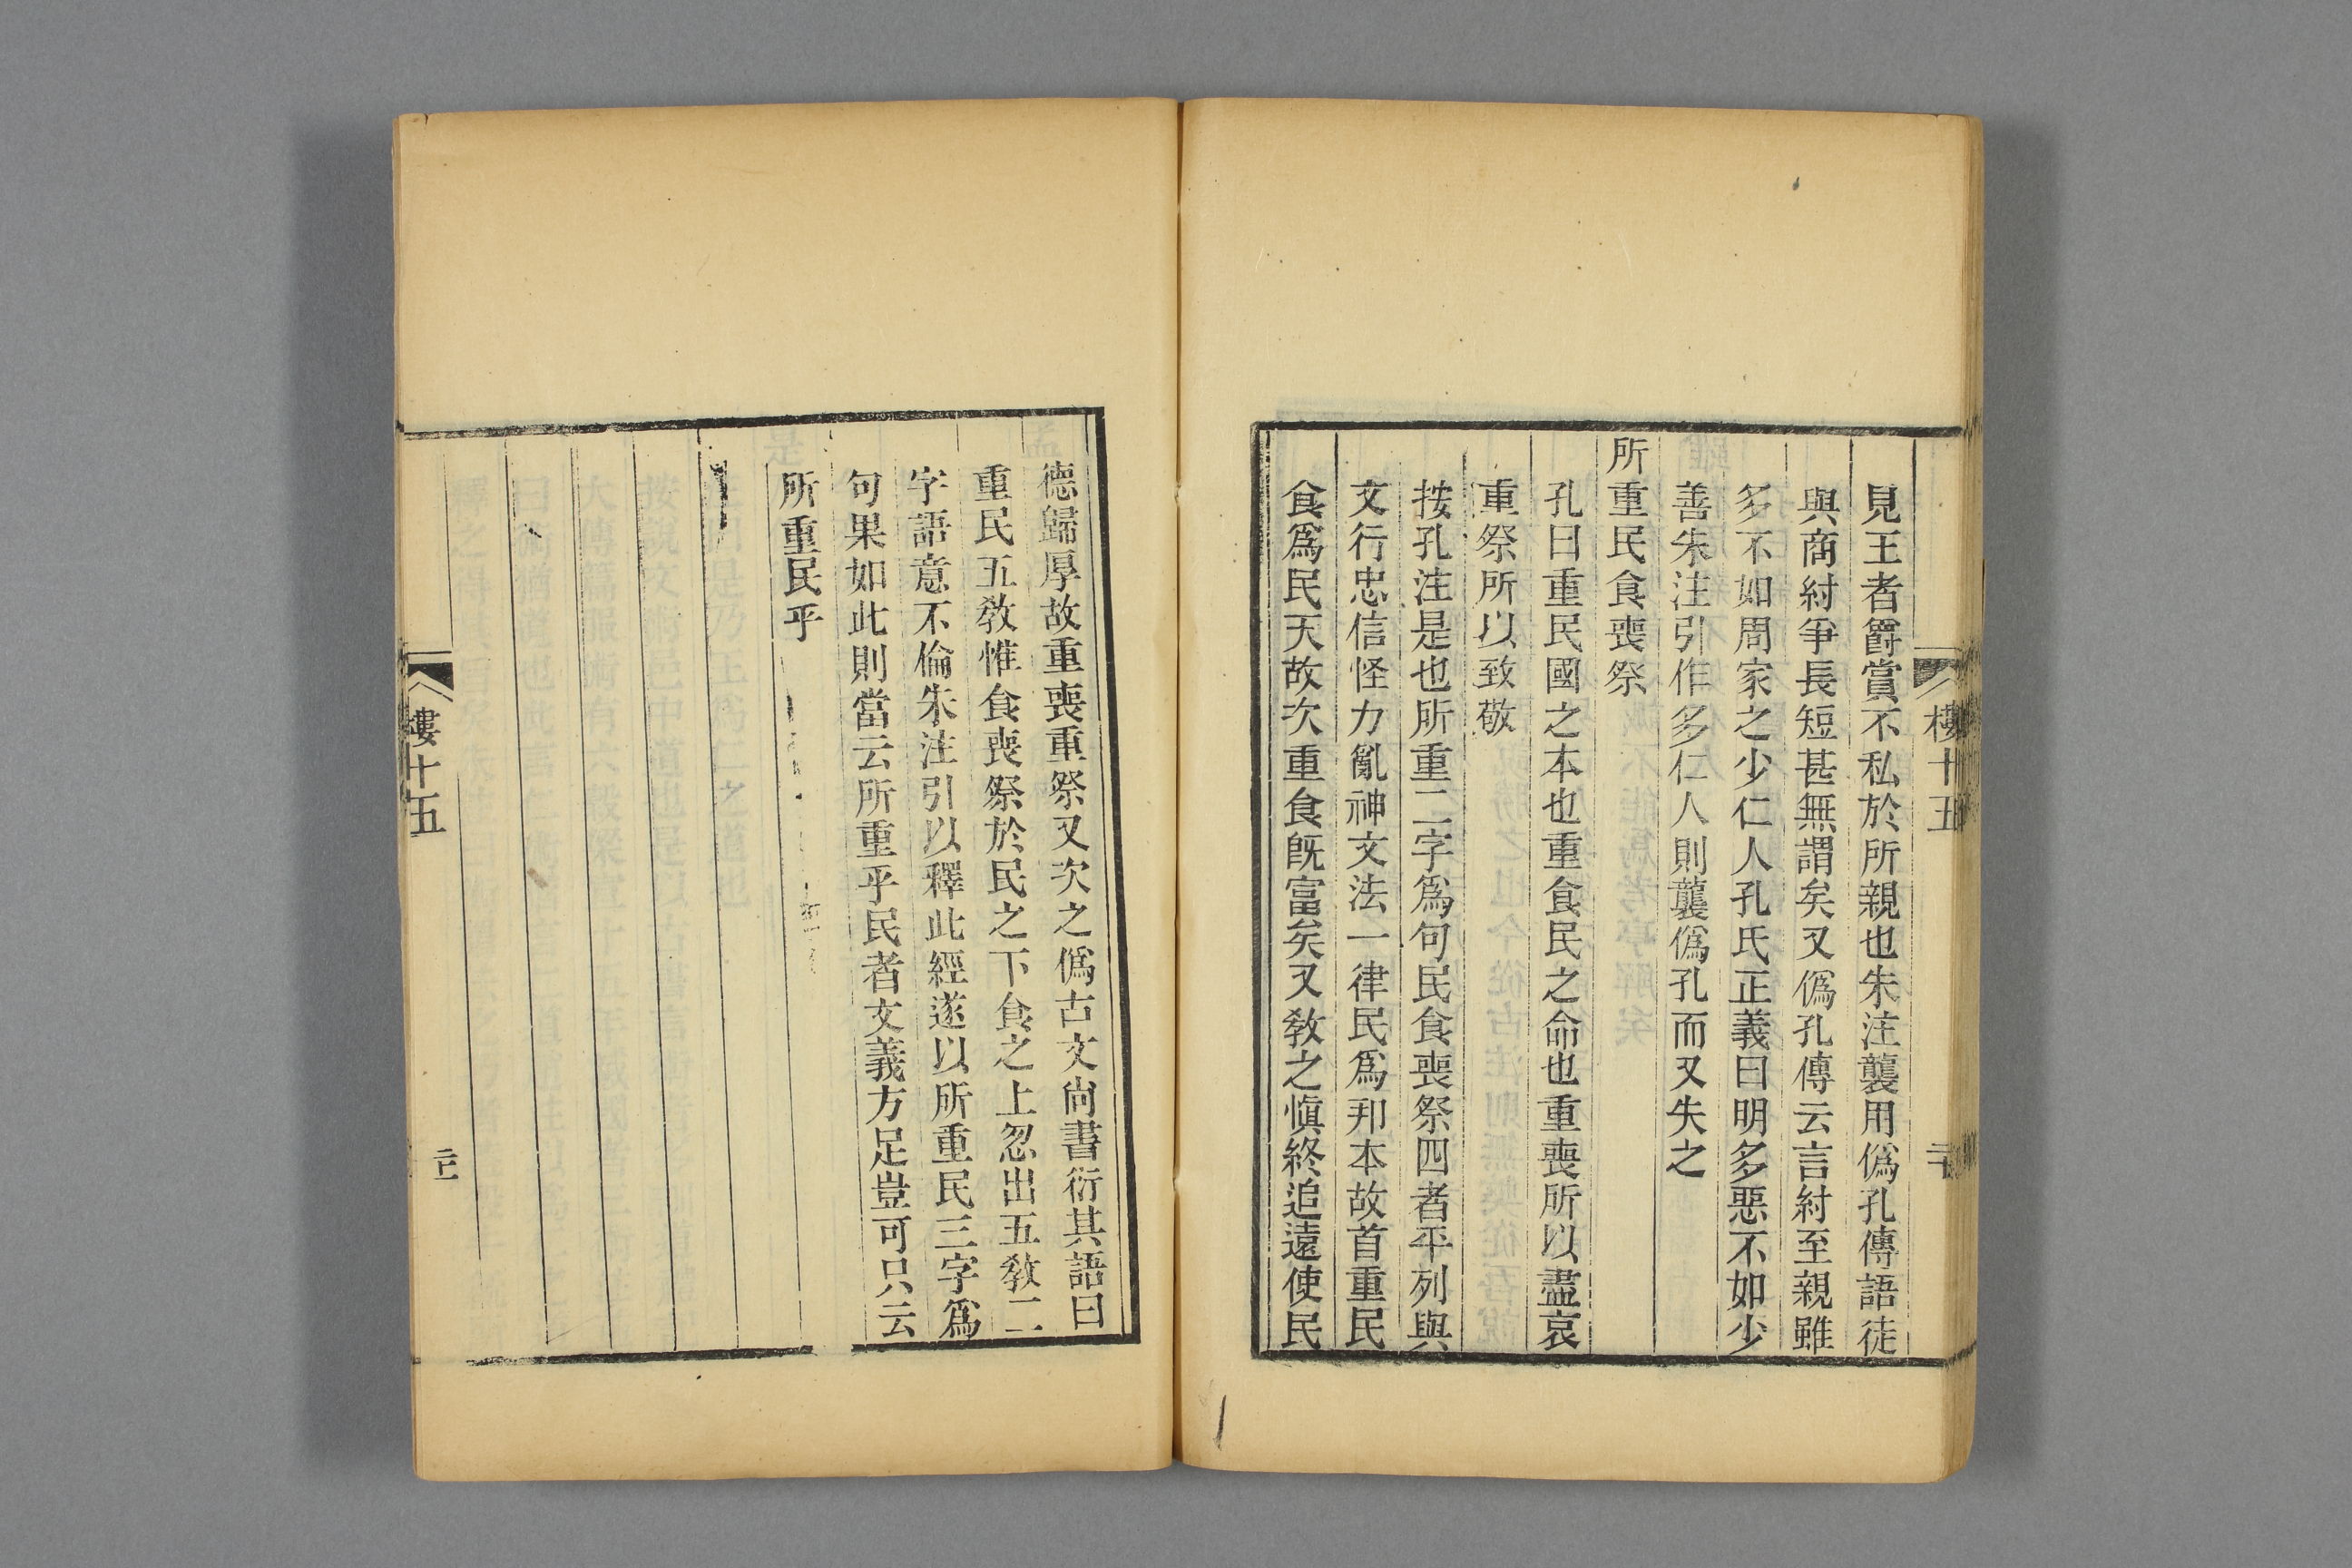 樓十五
二十
見王者爵賞不私於所親也朱注襲用僞孔傳語徒
與商紂爭長短甚無謂矣又僞孔傳云言紂至親雖
多不如周家之少仁人孔氏正義曰明多惡不如少
善朱注引作多仁人則襲僞孔而又失之
所重民食喪祭
孔曰重民國之本也重食民之命也重喪所以盡哀
重祭所以致敬
按孔注是也所重二字爲句民食喪祭四者平列與
文行忠信怪力亂神文法一律民爲邦本故首重民
食爲民天故次重食旣富矣又敎之愼終追遠使民
德歸厚故重喪重祭又次之僞古文尙書衍其語曰
重民五敎惟食喪祭於民之下食之上忽出五敎二
字語意不倫朱注引以釋此經遂以所重民三字爲
句果如此則當云所重乎民者文義方足豈可只云
所重民乎
樓十五
二十一